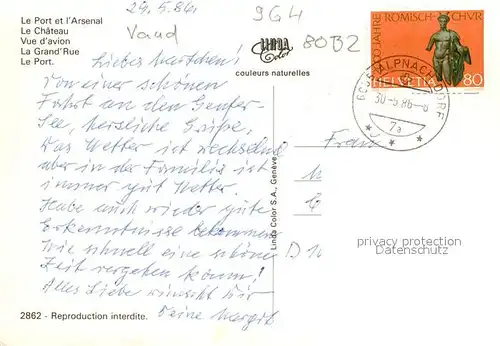 Le Port et l'Arsenal
Le Château
Vue d'avion
La Grand'Rue
Le Port.
29.5.86
Vaud
9G4
80B2
LINDA
Color
couleurs naturelles
2000 JAHRE RÖMISCH-CHUR
HELVETIA 80
6055 ALPNACH DORF
30.-5.86-8
7a
Liebes
Von einer schönen
Fahrt an den Genfer-
See, herzliche Grüsse,
Das Wetter ist wechselnd
aber in der Familie ist
immer gut Wetter.
Habe auch wieder gute
Erkenntnisse bekommen
Wie schnell eine schöne
Zeit vergehen kann!
Alles Liebe wünscht Dir
Deine Margit
Frau
D
Linda Color S.A., Genève
privacy protection
Datenschutz
2862 - Reproduction interdite.